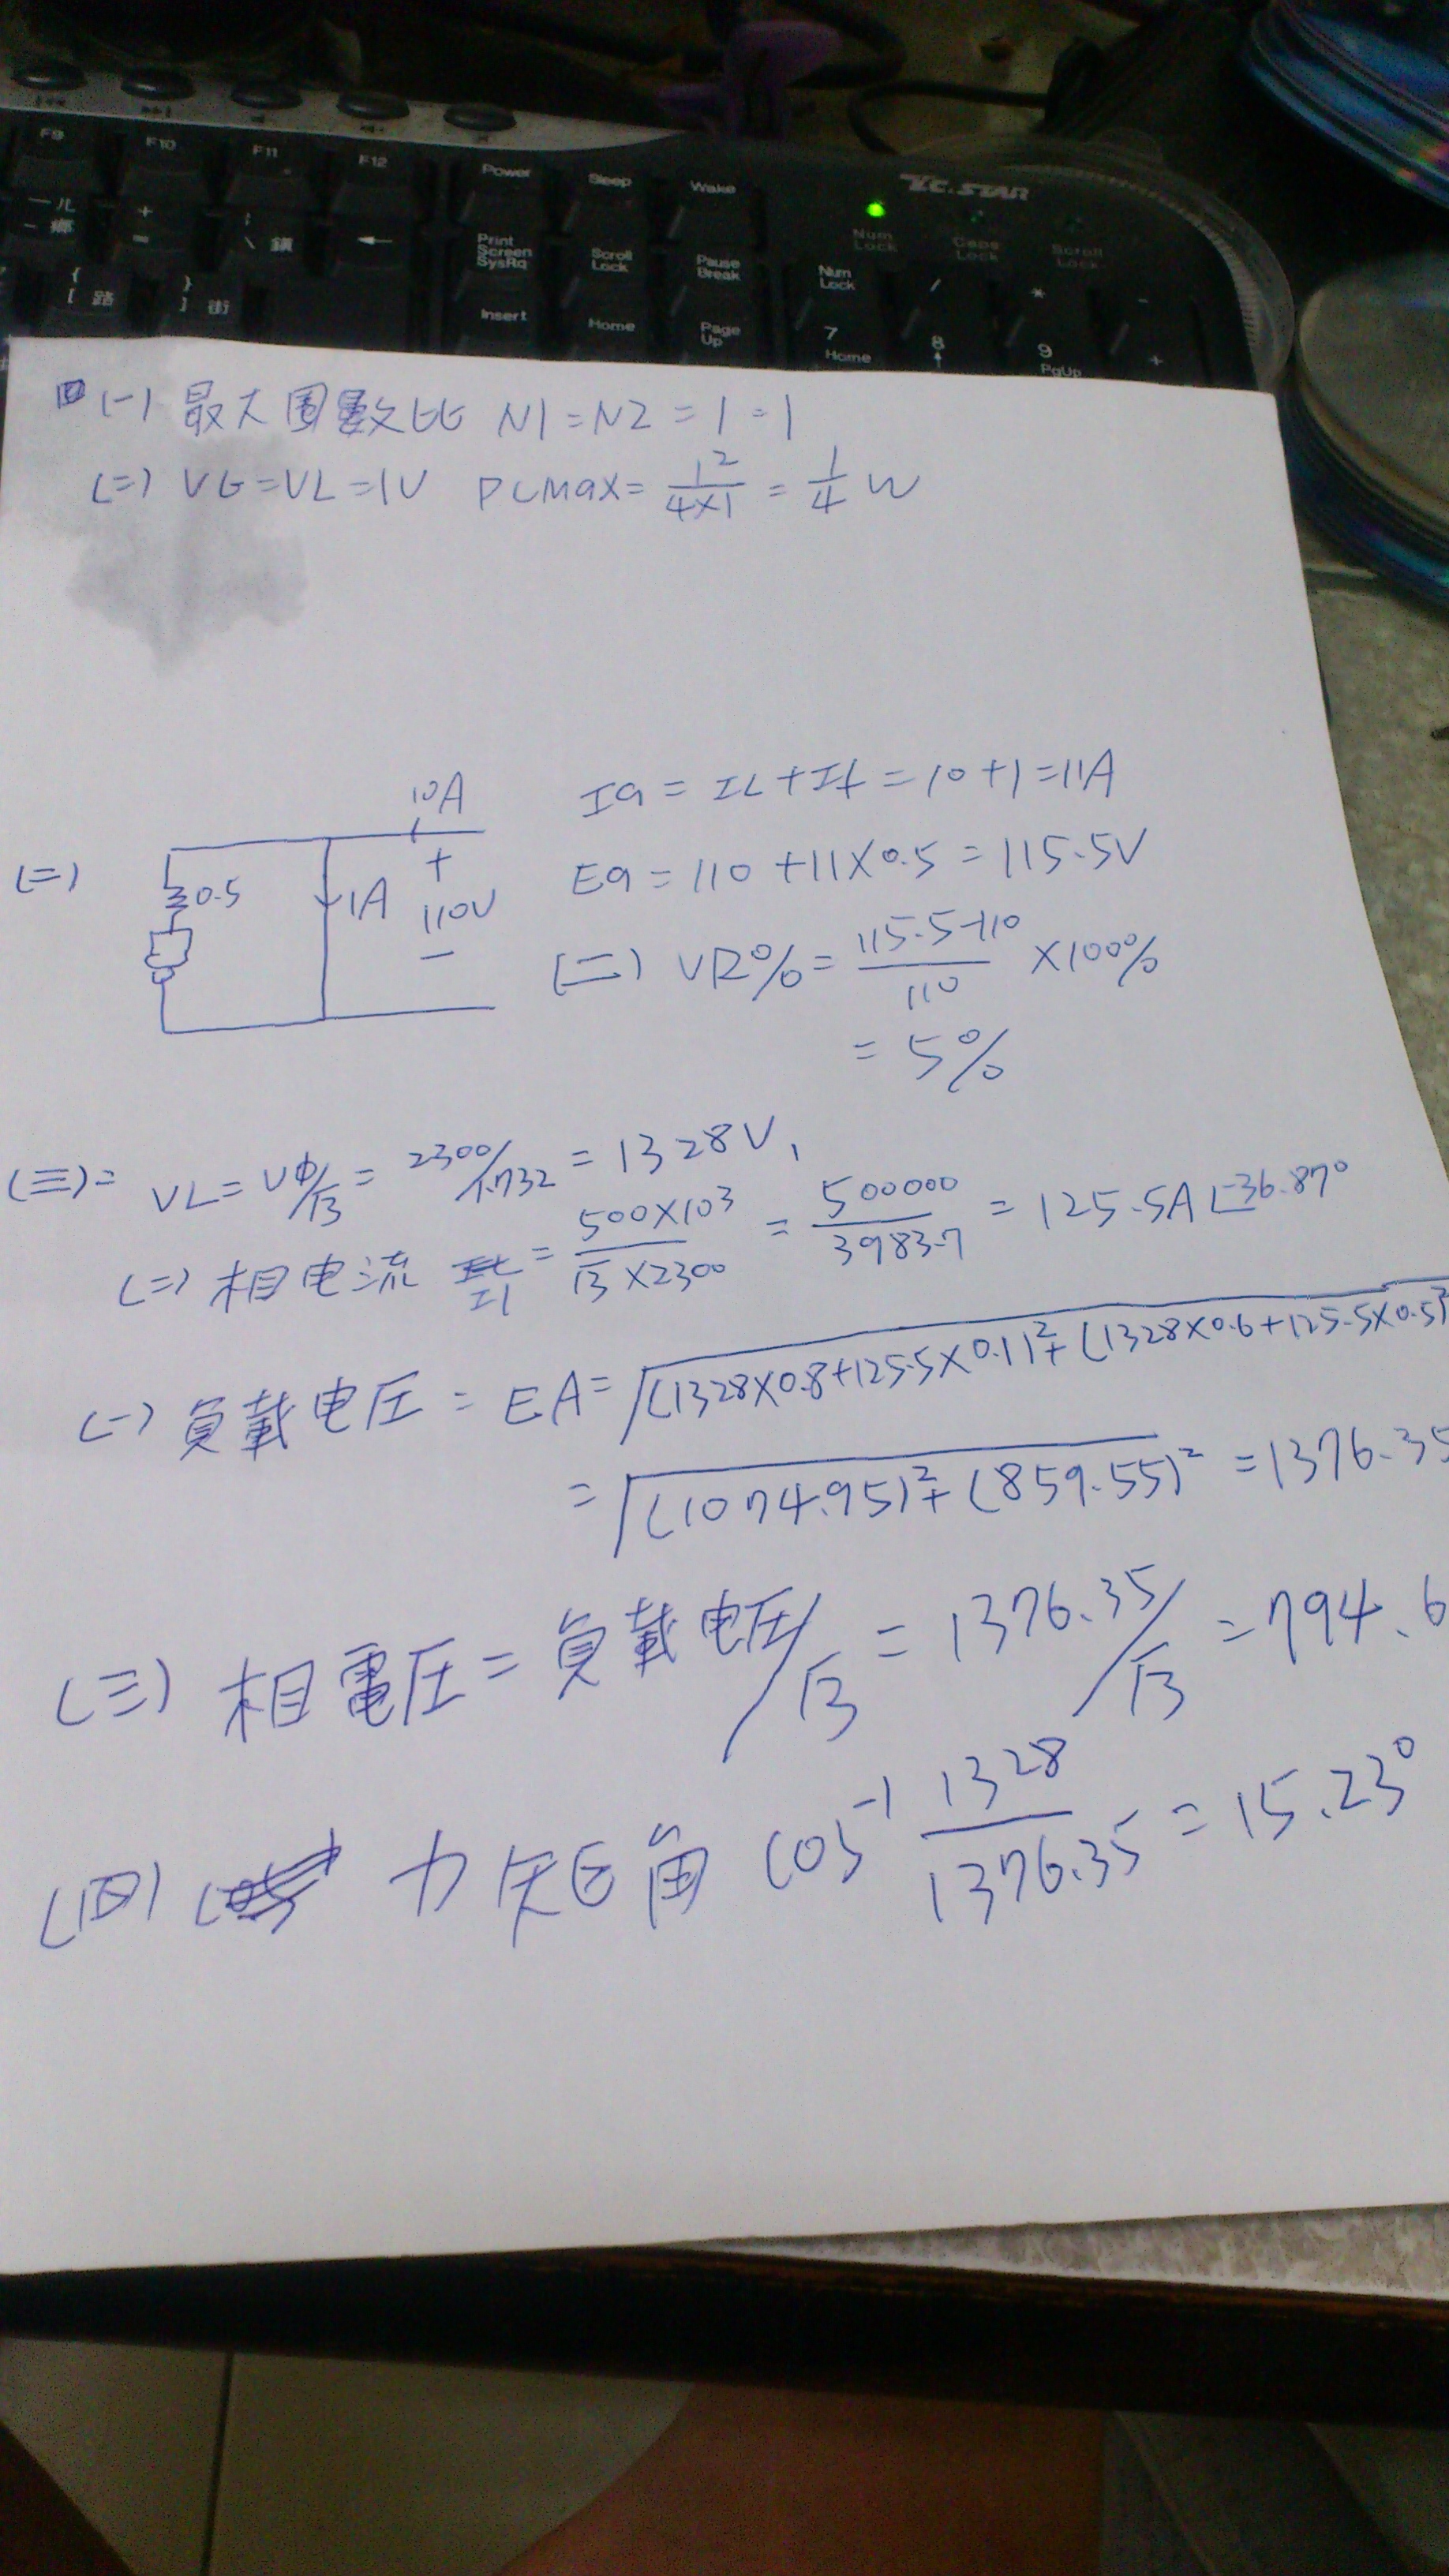 F9 F10 F11 F12 Power Sleep Wake
Num Lock Caps Lock Scroll Lock
ㄦ 鄉 + = \ 鎖 ← Print Screen SysRq Scroll Lock Pause Break Num Lock / * -
{ [ 路 } ] 街 Insert Home Page Up 7 Home 8 ↑ 9 PgUp +
(一) 最大圈數比 N1=N2=1=1
(二) VG=VL=1V PLMax=1²/4×1=1/4 W
(二)
10A
0.5
1A
+
110V
−
Ia=IL+If=10+1=11A
Ea=110+11×0.5=115.5V
(二) VR%=115.5-110/110 ×100%
=5%
(三)= VL=Vφ/√3=2300/1.732=1328V,
(二) 相电流 I1=500×10³/√3×2300=500000/3983.7=125.5A∠-36.87°
(一) 負載电圧=EA=√(1328×0.8+125.5×0.1)²+(1328×0.6+125.5×0.5)²
=√(1074.95)²+(859.55)²=1376.35
(三) 相電圧=負載电圧/√3=1376.35/√3=794.6
(四) 力矩角 cos⁻¹ 1328/1376.35=15.23°